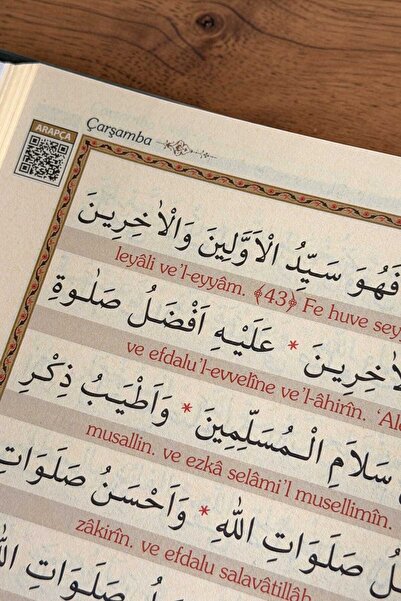 ARAPÇA
Çarşamba
فَهُوَ سَيِّدُ الْاَوَّلِينَ وَالْاٰخِرِينَ
leyâli ve'l-eyyâm. ﴾43﴿ Fe huve
عَلَيْهِ اَفْضَلُ صَلٰوةِ
ve efdalu'l-evvelîne ve'l-âhirîn.
سَلَامِ الْمُسَلِّمِينَ * وَاَطْيَبُ ذِكْرِ
musallin. ve ezkâ selâmi'l musellimîn.
صَلَوَاتِ اللّٰهِ * وَاَحْسَنُ صَلَوَاتِ
zâkirîn. ve efdalu salavâtillâh
صَلَوَاتِ